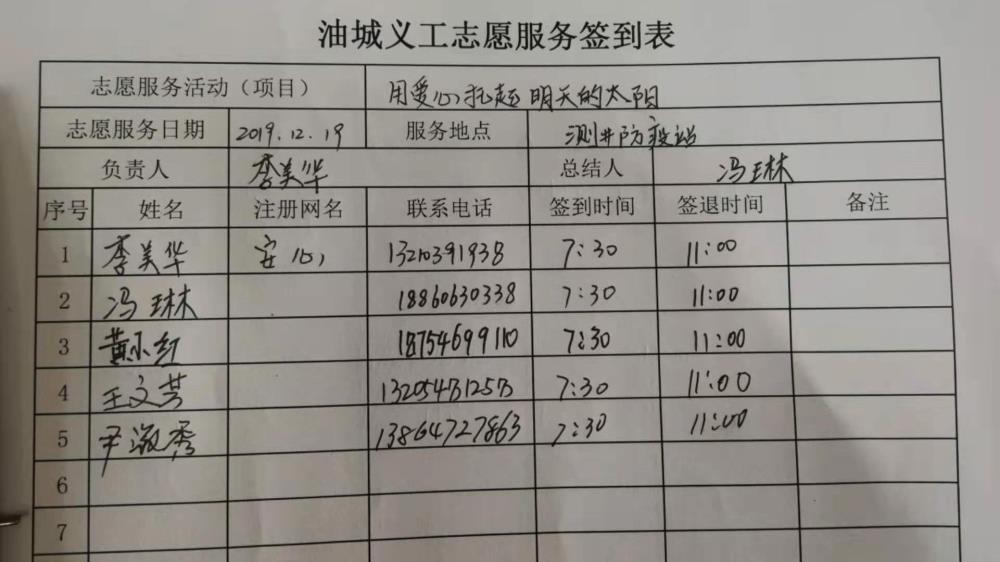 油城义工志愿服务签到表
志愿服务活动（项目） 用爱心托起明天的太阳
志愿服务日期 2019.12.19 服务地点 测井防疫站
负责人 李美华 总结人 冯琳
序号 姓名 注册网名 联系电话 签到时间 签退时间 备注
1 李美华 安心 13210391938 7:30 11:00
2 冯琳 18860630338 7:30 11:00
3 黄小红 18754699110 7:30 11:00
4 王文芳 7:30 11:00
5 尹淑秀 13864727863 7:30 11:00
6
7